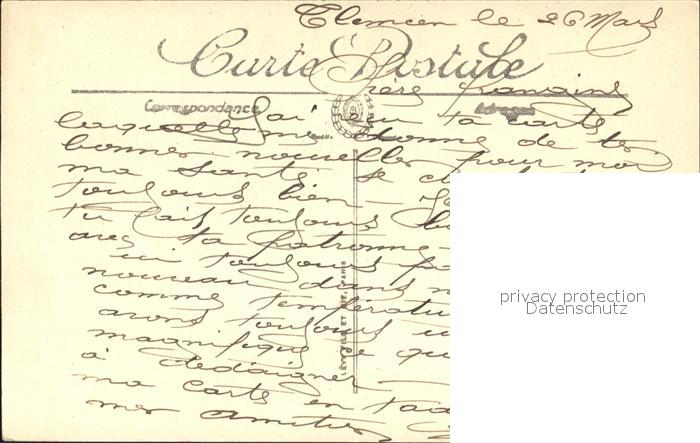 Tlemcen le 26 Mars
Carte Postale
Chers
Correspondance
Adresse
J'ai eu ta carte
laquelle me donne de tes
bonnes nouvelles pour moi
ma santé se
toujours bien
tu fais toujours
avec ta patronne
ici toujours
nouveau dans
comme températu
avons toujours
magnifique ce qu
à dédaigner
ma carte en t'a
mes amitiés
LÉVY FILS ET CIE, PARIS
privacy protection
Datenschutz